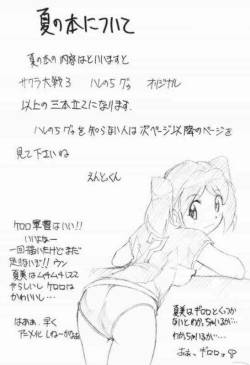 夏の本について
夏の本の内容はといいますと
サクラ大戦3 ハレのちグゥ オリジナル
以上の三本立てになります.
ハレのちグゥを知らない人は次ページ以降のページを
見て下さいね
えんどくん
ケロロ軍曹はいい!!
いいよなー
一回描いたけどまだ
足らないぜ!! ウン
夏美はムチムチしてて
やらしいし ケロロは
かわいいし…
はぁぁ、早く
アニメ化しねーかなぁ
夏美はギロロとくっつか
ないとわかっちゃいるが…
わかっちゃいるが…
おお、ギロロッ